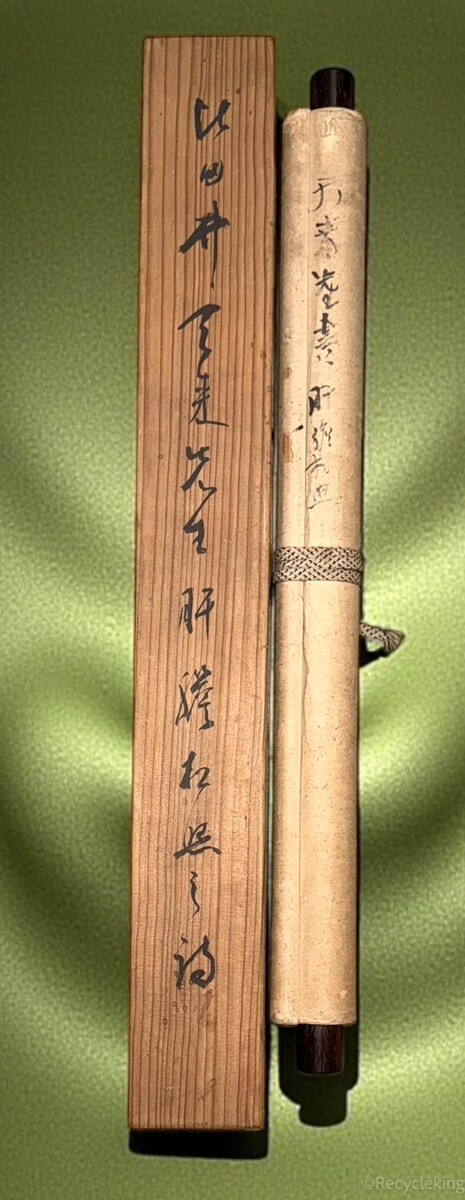 比田井天来先生肝膽相照之詩
天来先生書肝膽相照
©Recycleking